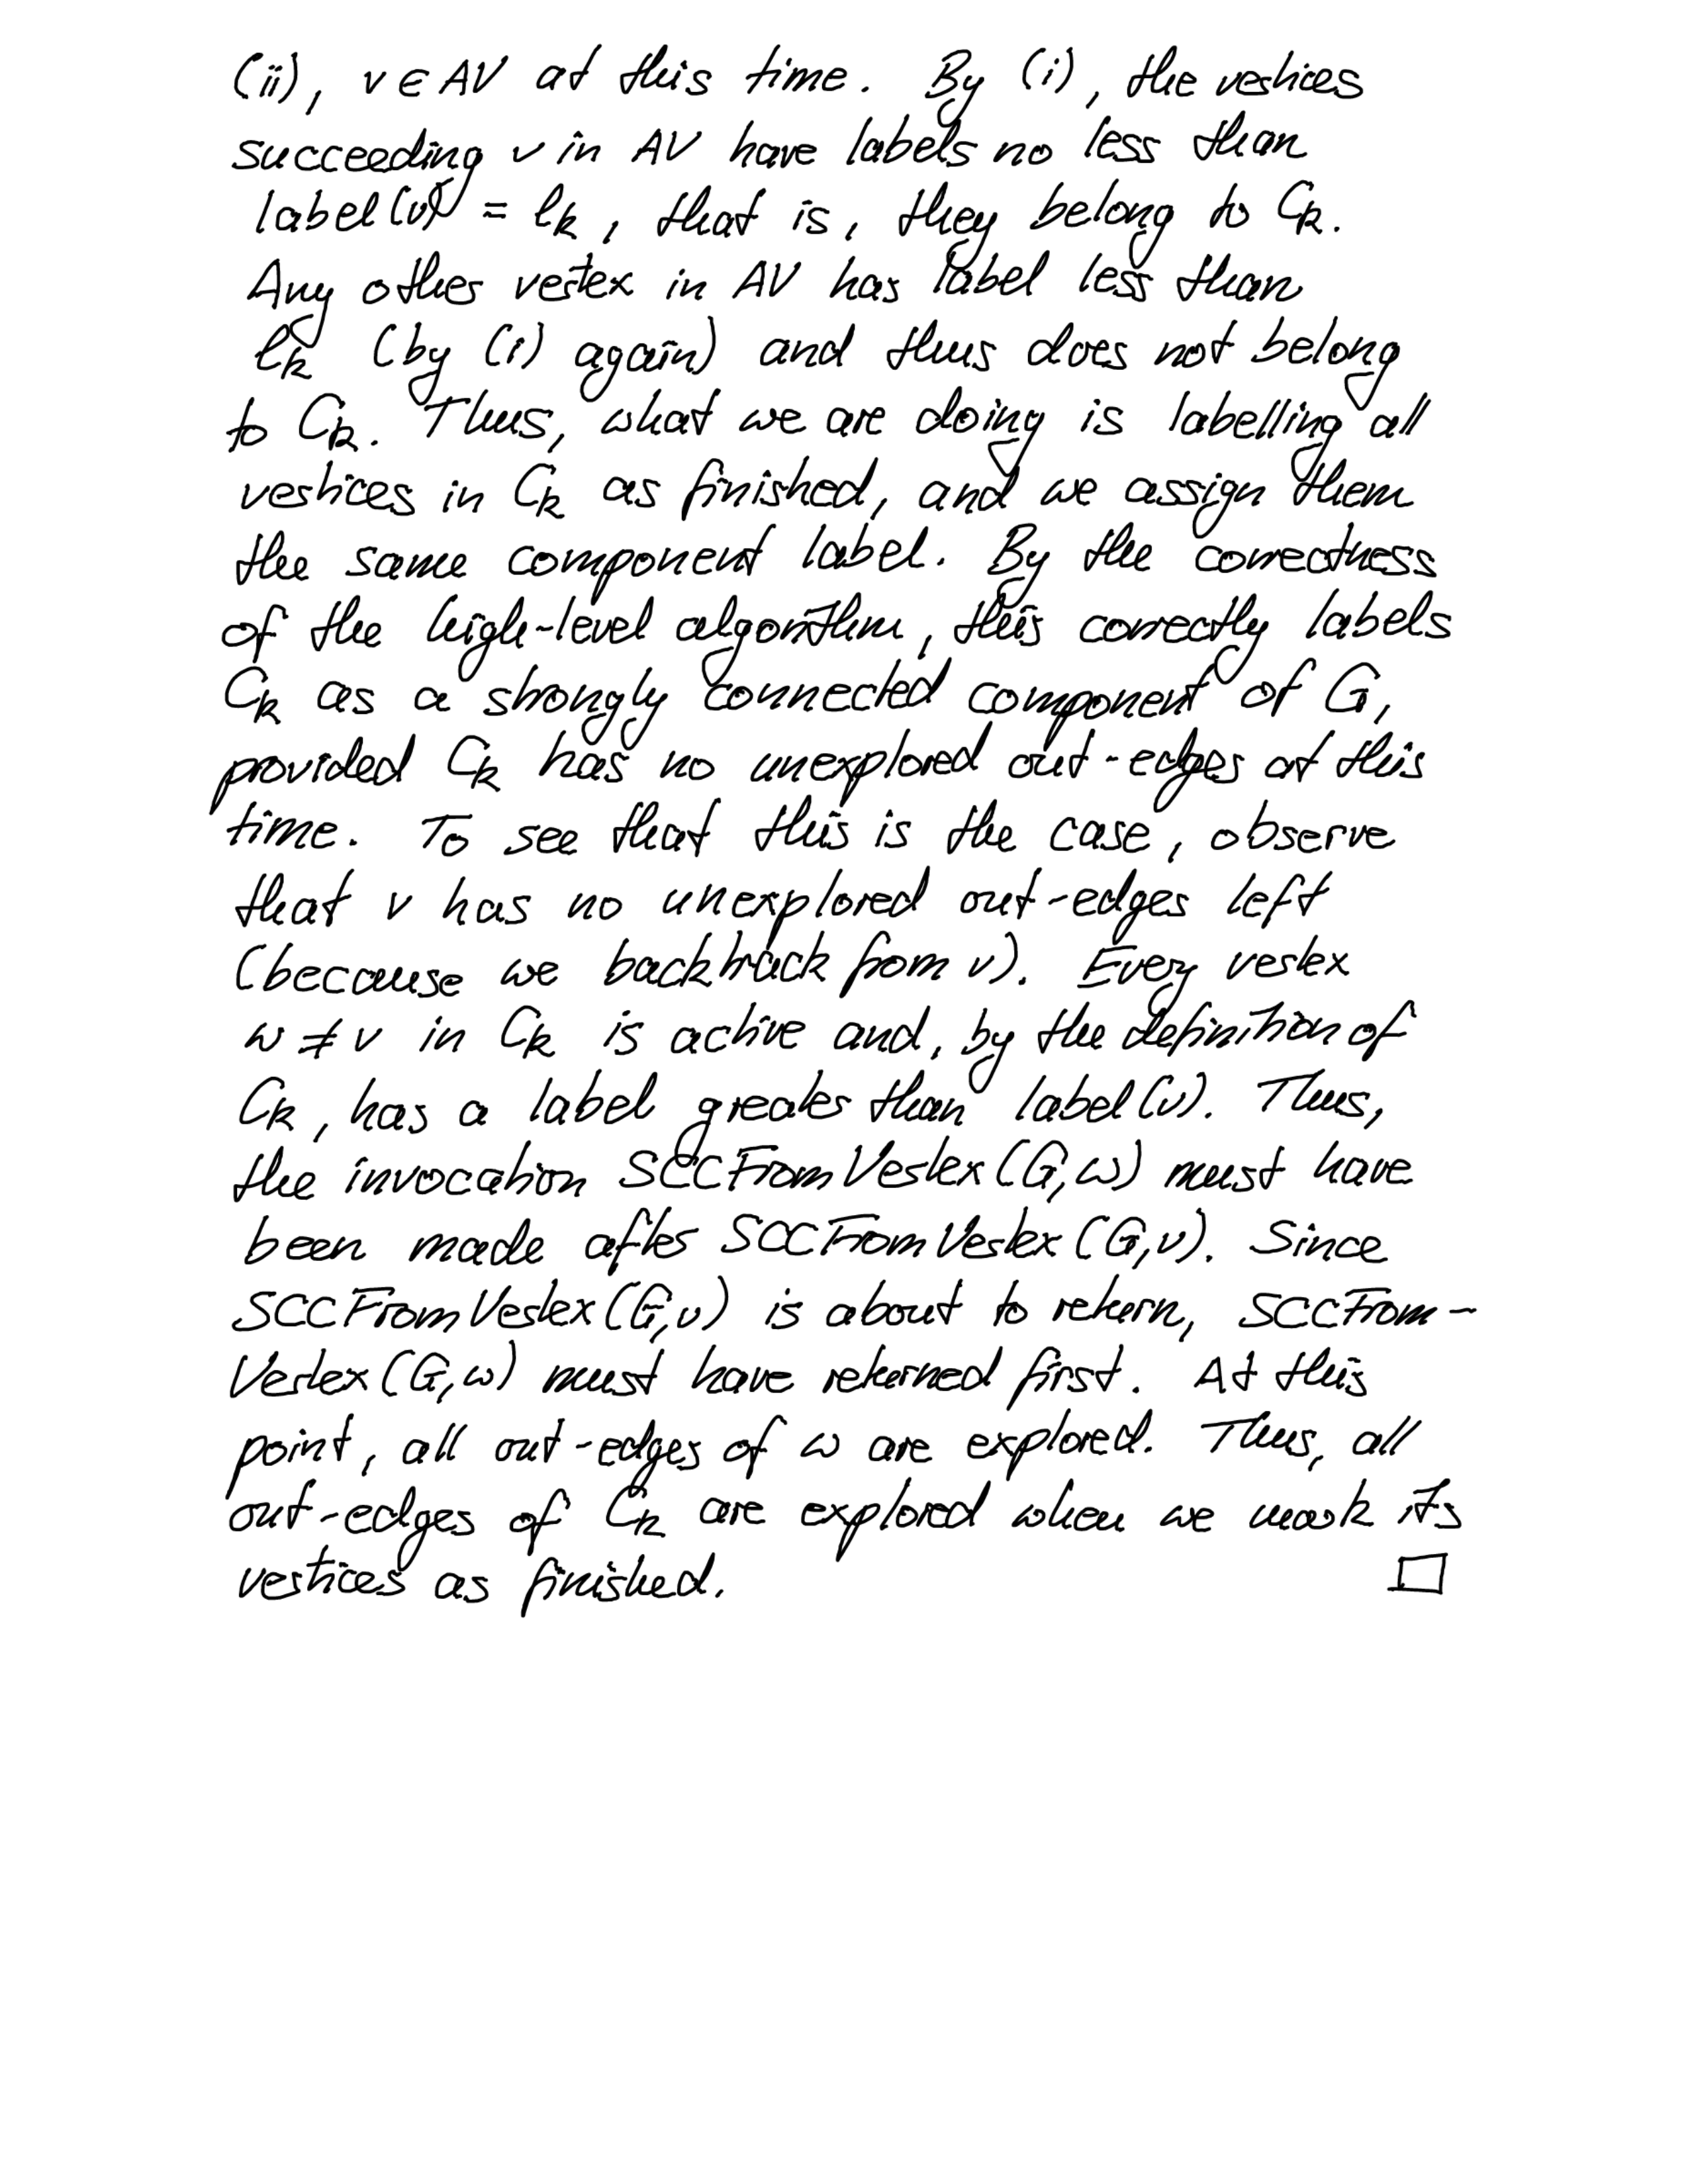 (ii), v ∈ AV at this time. By (i), the vertices
succeeding v in AV have labels no less than
label(v) = ℓk, that is, they belong to Ck.
Any other vertex in AV has label less than
ℓk (by (i) again) and thus does not belong
to Ck. Thus, what we are doing is labelling all
vertices in Ck as finished, and we assign them
the same component label. By the correctness
of the high-level algorithm, this correctly labels
Ck as a strongly connected component of G,
provided Ck has no unexplored out-edges at this
time. To see that this is the case, observe
that v has no unexplored out-edges left
(because we backtrack from v). Every vertex
w ≠ v in Ck is active and, by the definition of
Ck, has a label greater than label(v). Thus,
the invocation SCCFromVertex(G,w) must have
been made after SCCFromVertex(G,v). Since
SCCFromVertex(G,v) is about to return, SCCFrom-
Vertex(G,w) must have returned first. At this
point, all out-edges of w are explored. Thus, all
out-edges of Ck are explored when we mark its
vertices as finished. □